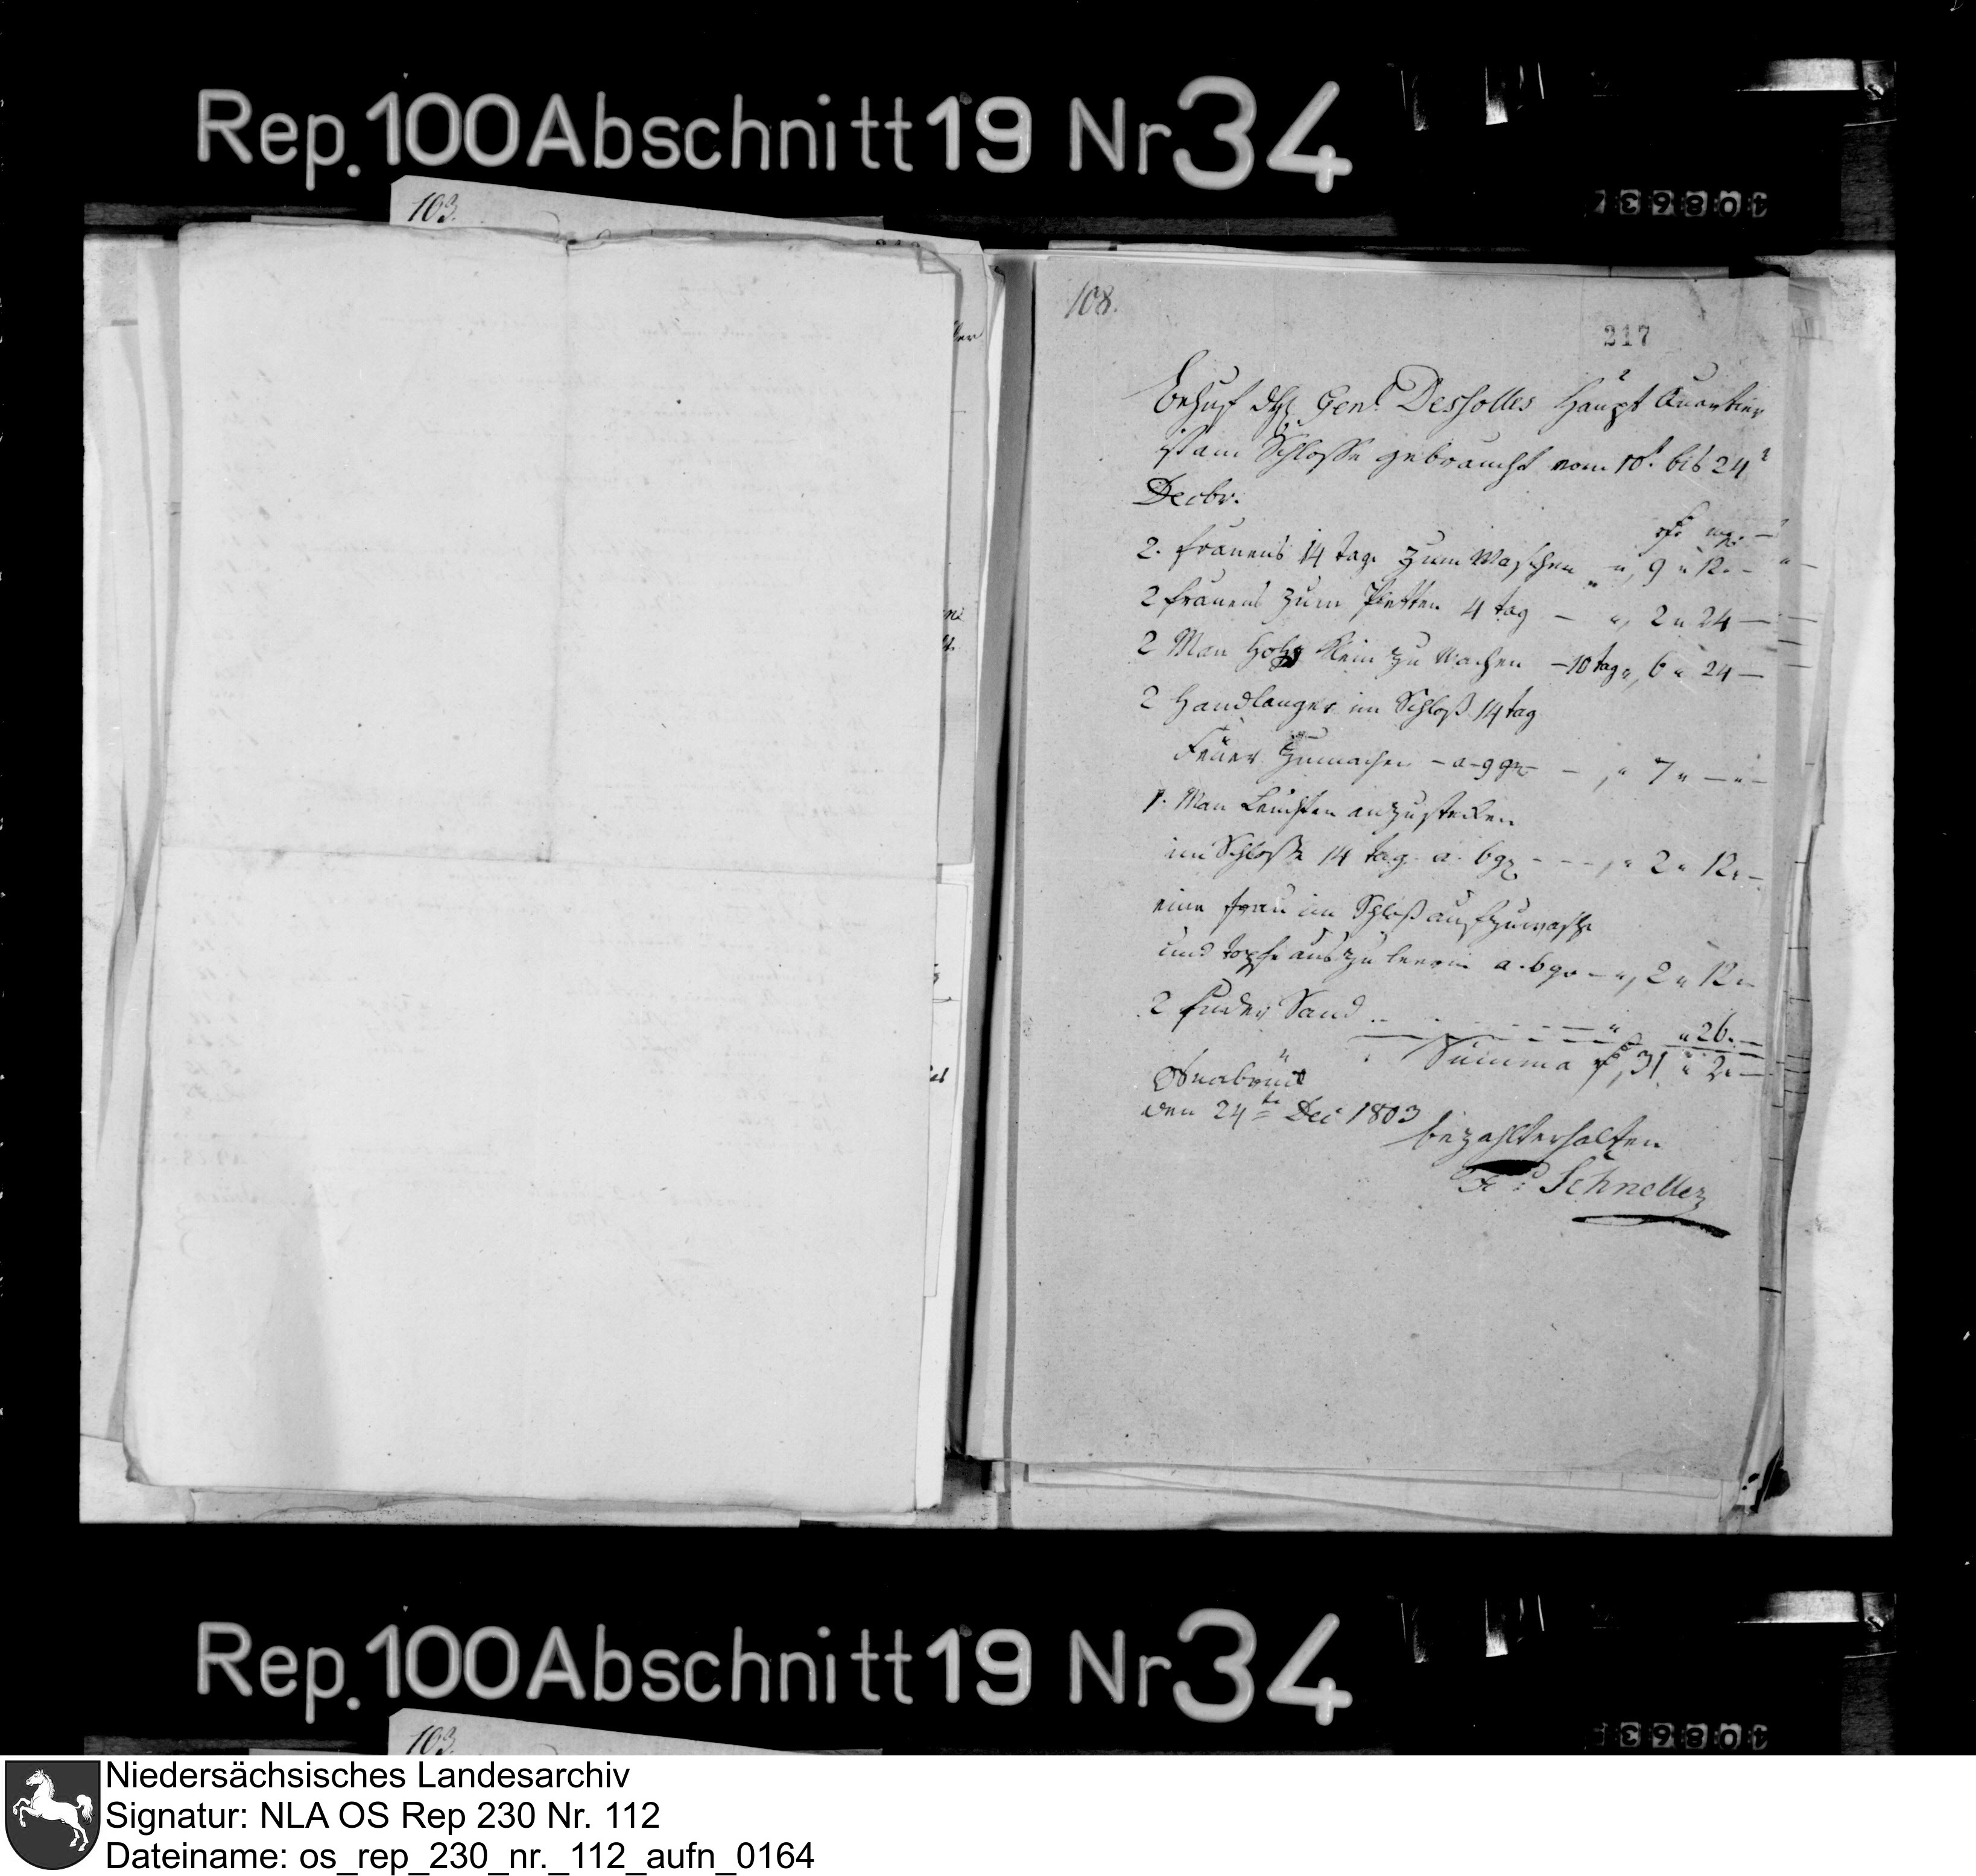 Rep. 100 Abschnitt 19 Nr 34
103.
108.
217
Behuf des Genl. Dessolles Haupt Quartier
ist am Schlosse gebraucht vom 10t. bis 24t
Decbr.
rthr mgr
2. frauens 14 tage zum Waschen „ 9 „ 12. –
2 frauens zum Pletten 4 tag – „ 2 „ 24 –
2 Man Holz klein zu Machen – 10 tag „ 6 „ 24 –
2 Handlanger im Schloß 14 tag
Feuer Zumachen – a – 9 gr – „ 7 „ – „ –
1. Man Leuchten anzustecken
im Schlosse 14 tag a. 6 gr - - - „ 2 „ 12. –
eine frau im Schloß aufzuwasche
und topfe aus zu leeren a. 6 gr – „ 2 „ 12 –
2 fuder Sand - - - - „ „ 26. –
Summa rthr 31 „ 2. –
Osnabrück
den 24te Dec 1803
bezahlt erhalten
Fr: Schneller
Rep. 100 Abschnitt 19 Nr 34
103.
Niedersächsisches Landesarchiv
Signatur: NLA OS Rep 230 Nr. 112
Dateiname: os_rep_230_nr._112_aufn_0164